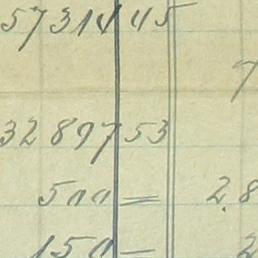 57314 45
7
32897 53
500 = 2.8
150 - 2